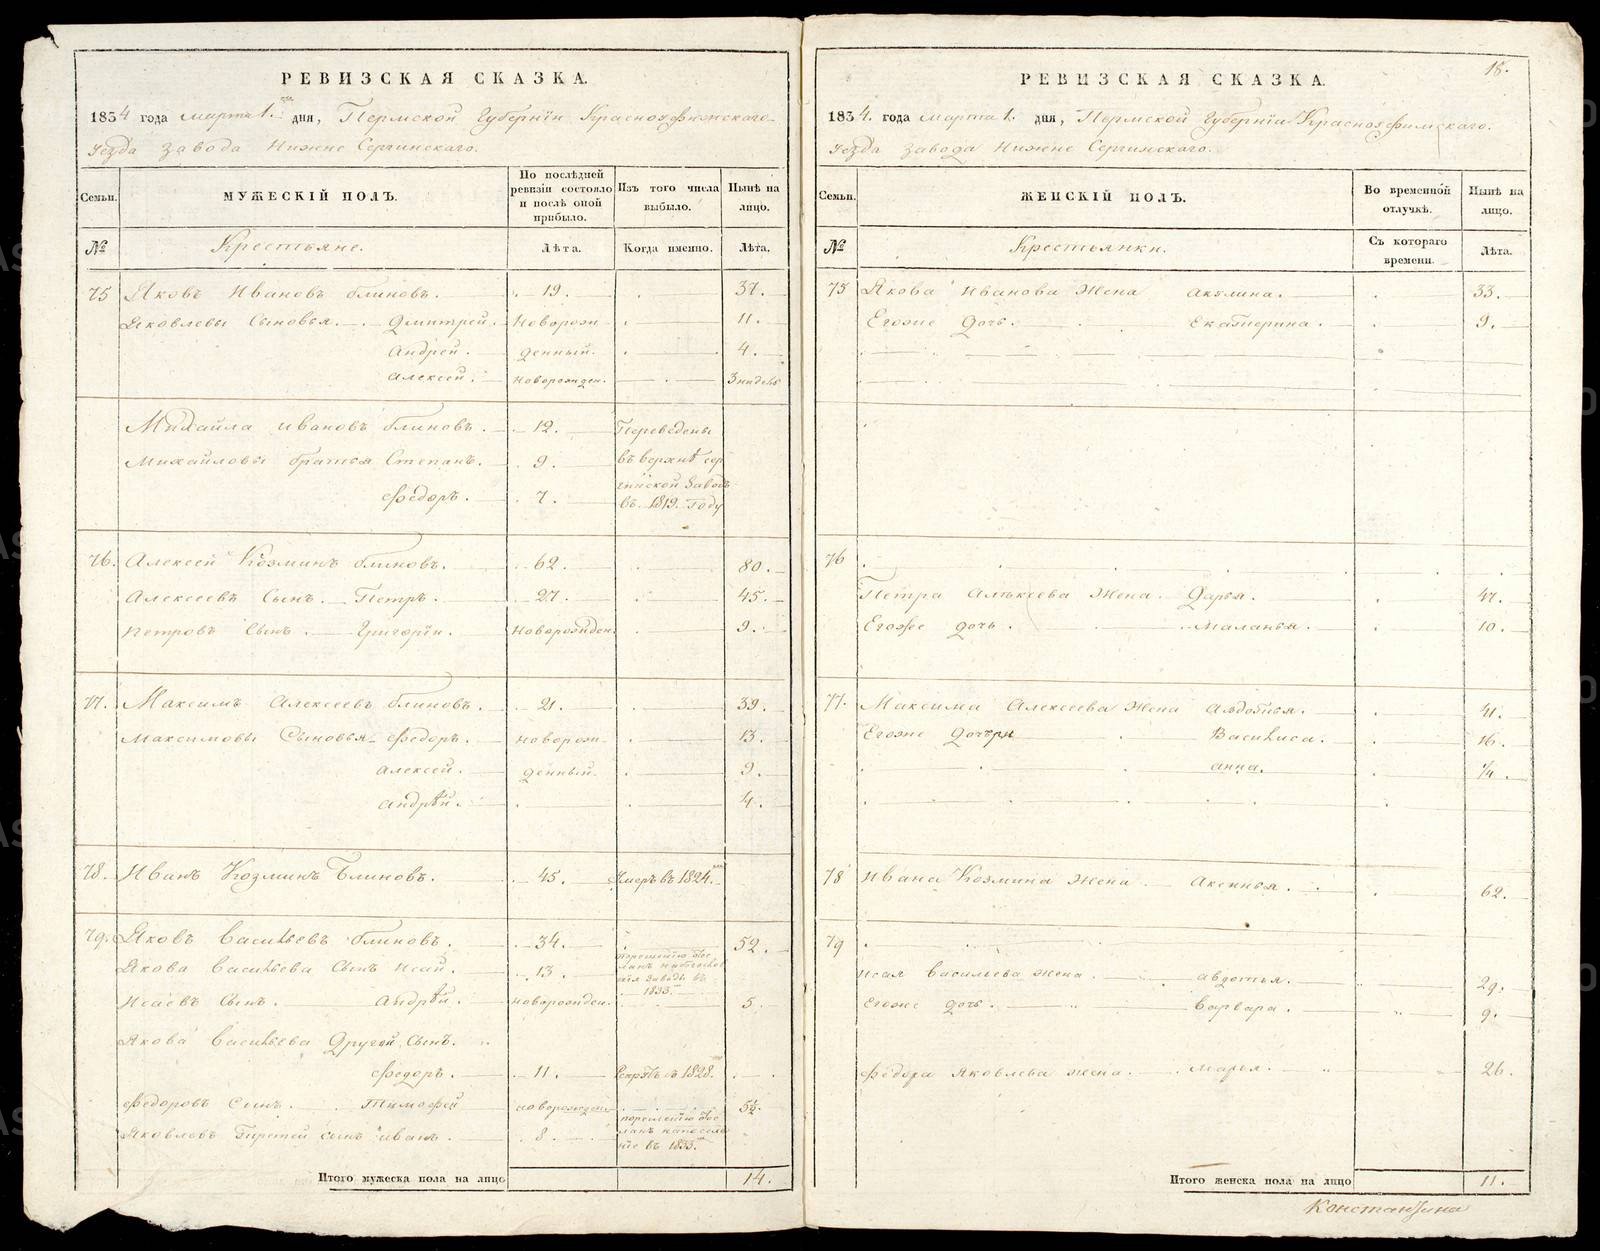 РЕВИЗСКАЯ СКАЗКА.
1834 года марта 1. дня, Пермской Губернїи Красноуфимскаго
уезда завода Нижне Сергинскаго.
Семьи. МУЖЕСКІЙ ПОЛЪ. По послѣдней ревизіи состояло и послѣ оной прибыло. Изъ того числа выбыло. Нынѣ на лицо.
№ Крестьяне. Лѣта. Когда именно. Лѣта.
75 Яковъ Ивановъ блиновъ. 19. 37.
Яковлевы Сыновья. Дмитрей. Новорож 11.
Андрей. денный. 4.
алексей. новорожден. 3 недель
Михайла ивановъ блиновъ. 12. Переведены
Михайловы братья Степанъ. 9. въ верхне сер
федоръ. 7. гинской завод
въ 1819. Году
76. Алексей Козминъ блиновъ. 62. 80.
Алексеевъ Сынъ. Петръ. 27. 45.
петровъ Сынъ. Григорїи. Новорожден. 9.
77. Максимъ Алексеевъ блиновъ. 21. 39.
Максимовы Сыновья федоръ. новорож 13.
алексей. денный. 9.
андрѣй. 4.
78. Иванъ Козминъ Блиновъ. 45. Умеръ въ 1824.
79. Яковъ Васильевъ блиновъ. 34. 52.
Якова Васильева Сынъ Исай. 13.
заводъ въ
1833.
Исаевъ Сынъ. Андрѣй. новорожден. 5.
Якова Васильева Другой Сынъ.
федоръ. 11. Рекрутъ съ 1828.
федоровъ Сынъ. Тимофей новорожден 5½.
Яковлевъ Третей сынъ иванъ. 8. въ 1833.
Итого мужеска пола на лицо 14.
18.
РЕВИЗСКАЯ СКАЗКА.
1834. года марта 1. дня, Пермской Губернїи Красноуфимскаго.
уезда завода Нижне Сергинскаго.
Семьи. ЖЕНСКІЙ ПОЛЪ. Во временной отлучкѣ. Нынѣ на лицо.
№ Крестьянки. Съ котораго времени. Лѣта.
75 Якова Иванова Жена акулина. 33.
Егоже дочь. Екатерина. 9.
76
Петра Алексеева Жена. Дарья. 47.
Егоже дочь. Маланья. 10.
77. Максима Алексеева Жена Авдотья. 41.
Егоже Дочери Василиса. 16.
анна. ¼.
78 Ивана Козмина Жена Аксинья. 62.
79
Исая Васильева жена. авдотья. 29.
Егоже дочь. Варвара. 9.
федора Яковлева жена. марья. 26.
Итого женска пола на лицо 11.
Константина